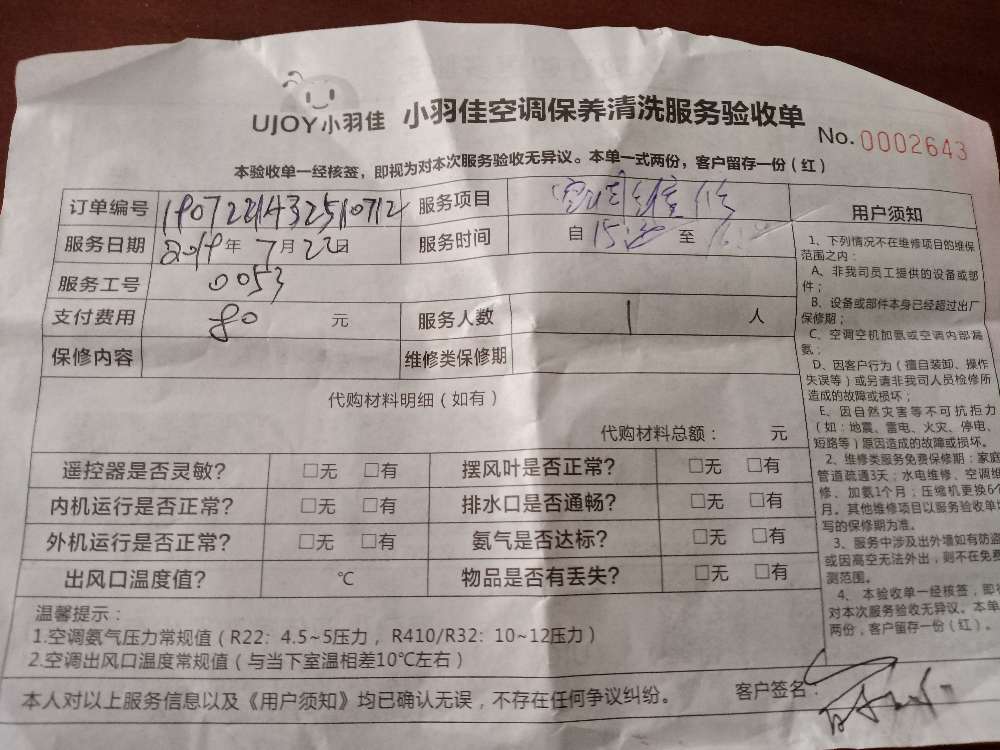 UJOY小羽佳 小羽佳空调保养清洗服务验收单
No. 0002643
本验收单一经核签，即视为对本次服务验收无异议。本单一式两份，客户留存一份（红）
订单编号 服务项目 空调维修
服务日期 2019年7月22日 服务时间 自 15: 至
服务工号 0053
支付费用 80 元 服务人数 1 人
保修内容 维修类保修期
代购材料明细（如有）
代购材料总额： 元
遥控器是否灵敏? □无 □有 摆风叶是否正常? □无 □有
内机运行是否正常? □无 □有 排水口是否通畅? □无 □有
外机运行是否正常? □无 □有 氨气是否达标? □无 □有
出风口温度值? ℃ 物品是否有丢失? □无 □有
温馨提示：
1.空调氨气压力常规值（R22：4.5~5压力，R410/R32：10~12压力）
2.空调出风口温度常规值（与当下室温相差10℃左右）
本人对以上服务信息以及《用户须知》均已确认无误，不存在任何争议纠纷。 客户签名：
用户须知
1、下列情况不在维修项目的维保
范围之内：
A、非我司员工提供的设备或部
件；
B、设备或部件本身已经超过出厂
保修期；
C、空调空机加氨或空调内部漏
氨；
D、因客户行为（擅自装卸、操作
失误等）或另请非我司人员检修所
造成的故障或损坏；
E、因自然灾害等不可抗拒力
（如：地震、雷电、火灾、停电、
短路等）原因造成的故障或损坏。
2、维修类服务免费保修期：家庭
管道疏通3天；水电维修、空调维
修、加氨1个月；压缩机更换6个
月。其他维修项目以服务验收单
写的保修期为准。
3、服务中涉及出外墙如有防盗
或因高空无法外出，则不在免费
测范围。
4、本验收单一经核签，即
对本次服务验收无异议。本单
两份，客户留存一份（红）。